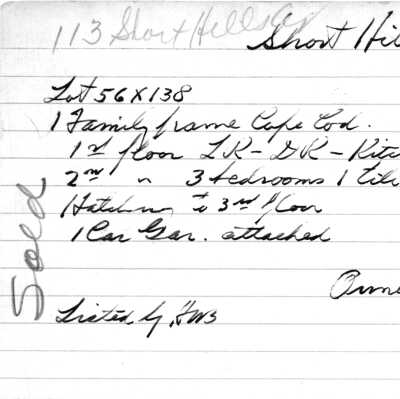 113 Short Hills Av
Short Hil
Lot 56 X 138
1 Family frame Cape Cod.
1st floor LR - DR - Kitc
2nd " 3 bedrooms 1 tile
to 3rd floor
1 Car Gar. attached
Sold
Owne
Listed by HWB